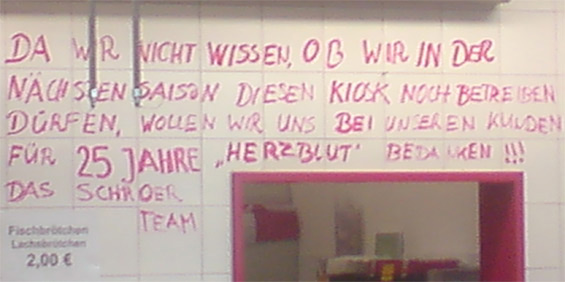 DA WIR NICHT WISSEN, OB WIR IN DER
NÄCHSTEN SAISON DIESEN KIOSK NOCH BETREIBEN
DÜRFEN, WOLLEN WIR UNS BEI UNSEREN KUNDEN
FÜR 25 JAHRE „HERZBLUT" BEDANKEN !!!
DAS SCHROER
TEAM
Fischbrötchen
Lachsbrötchen
2,00 €